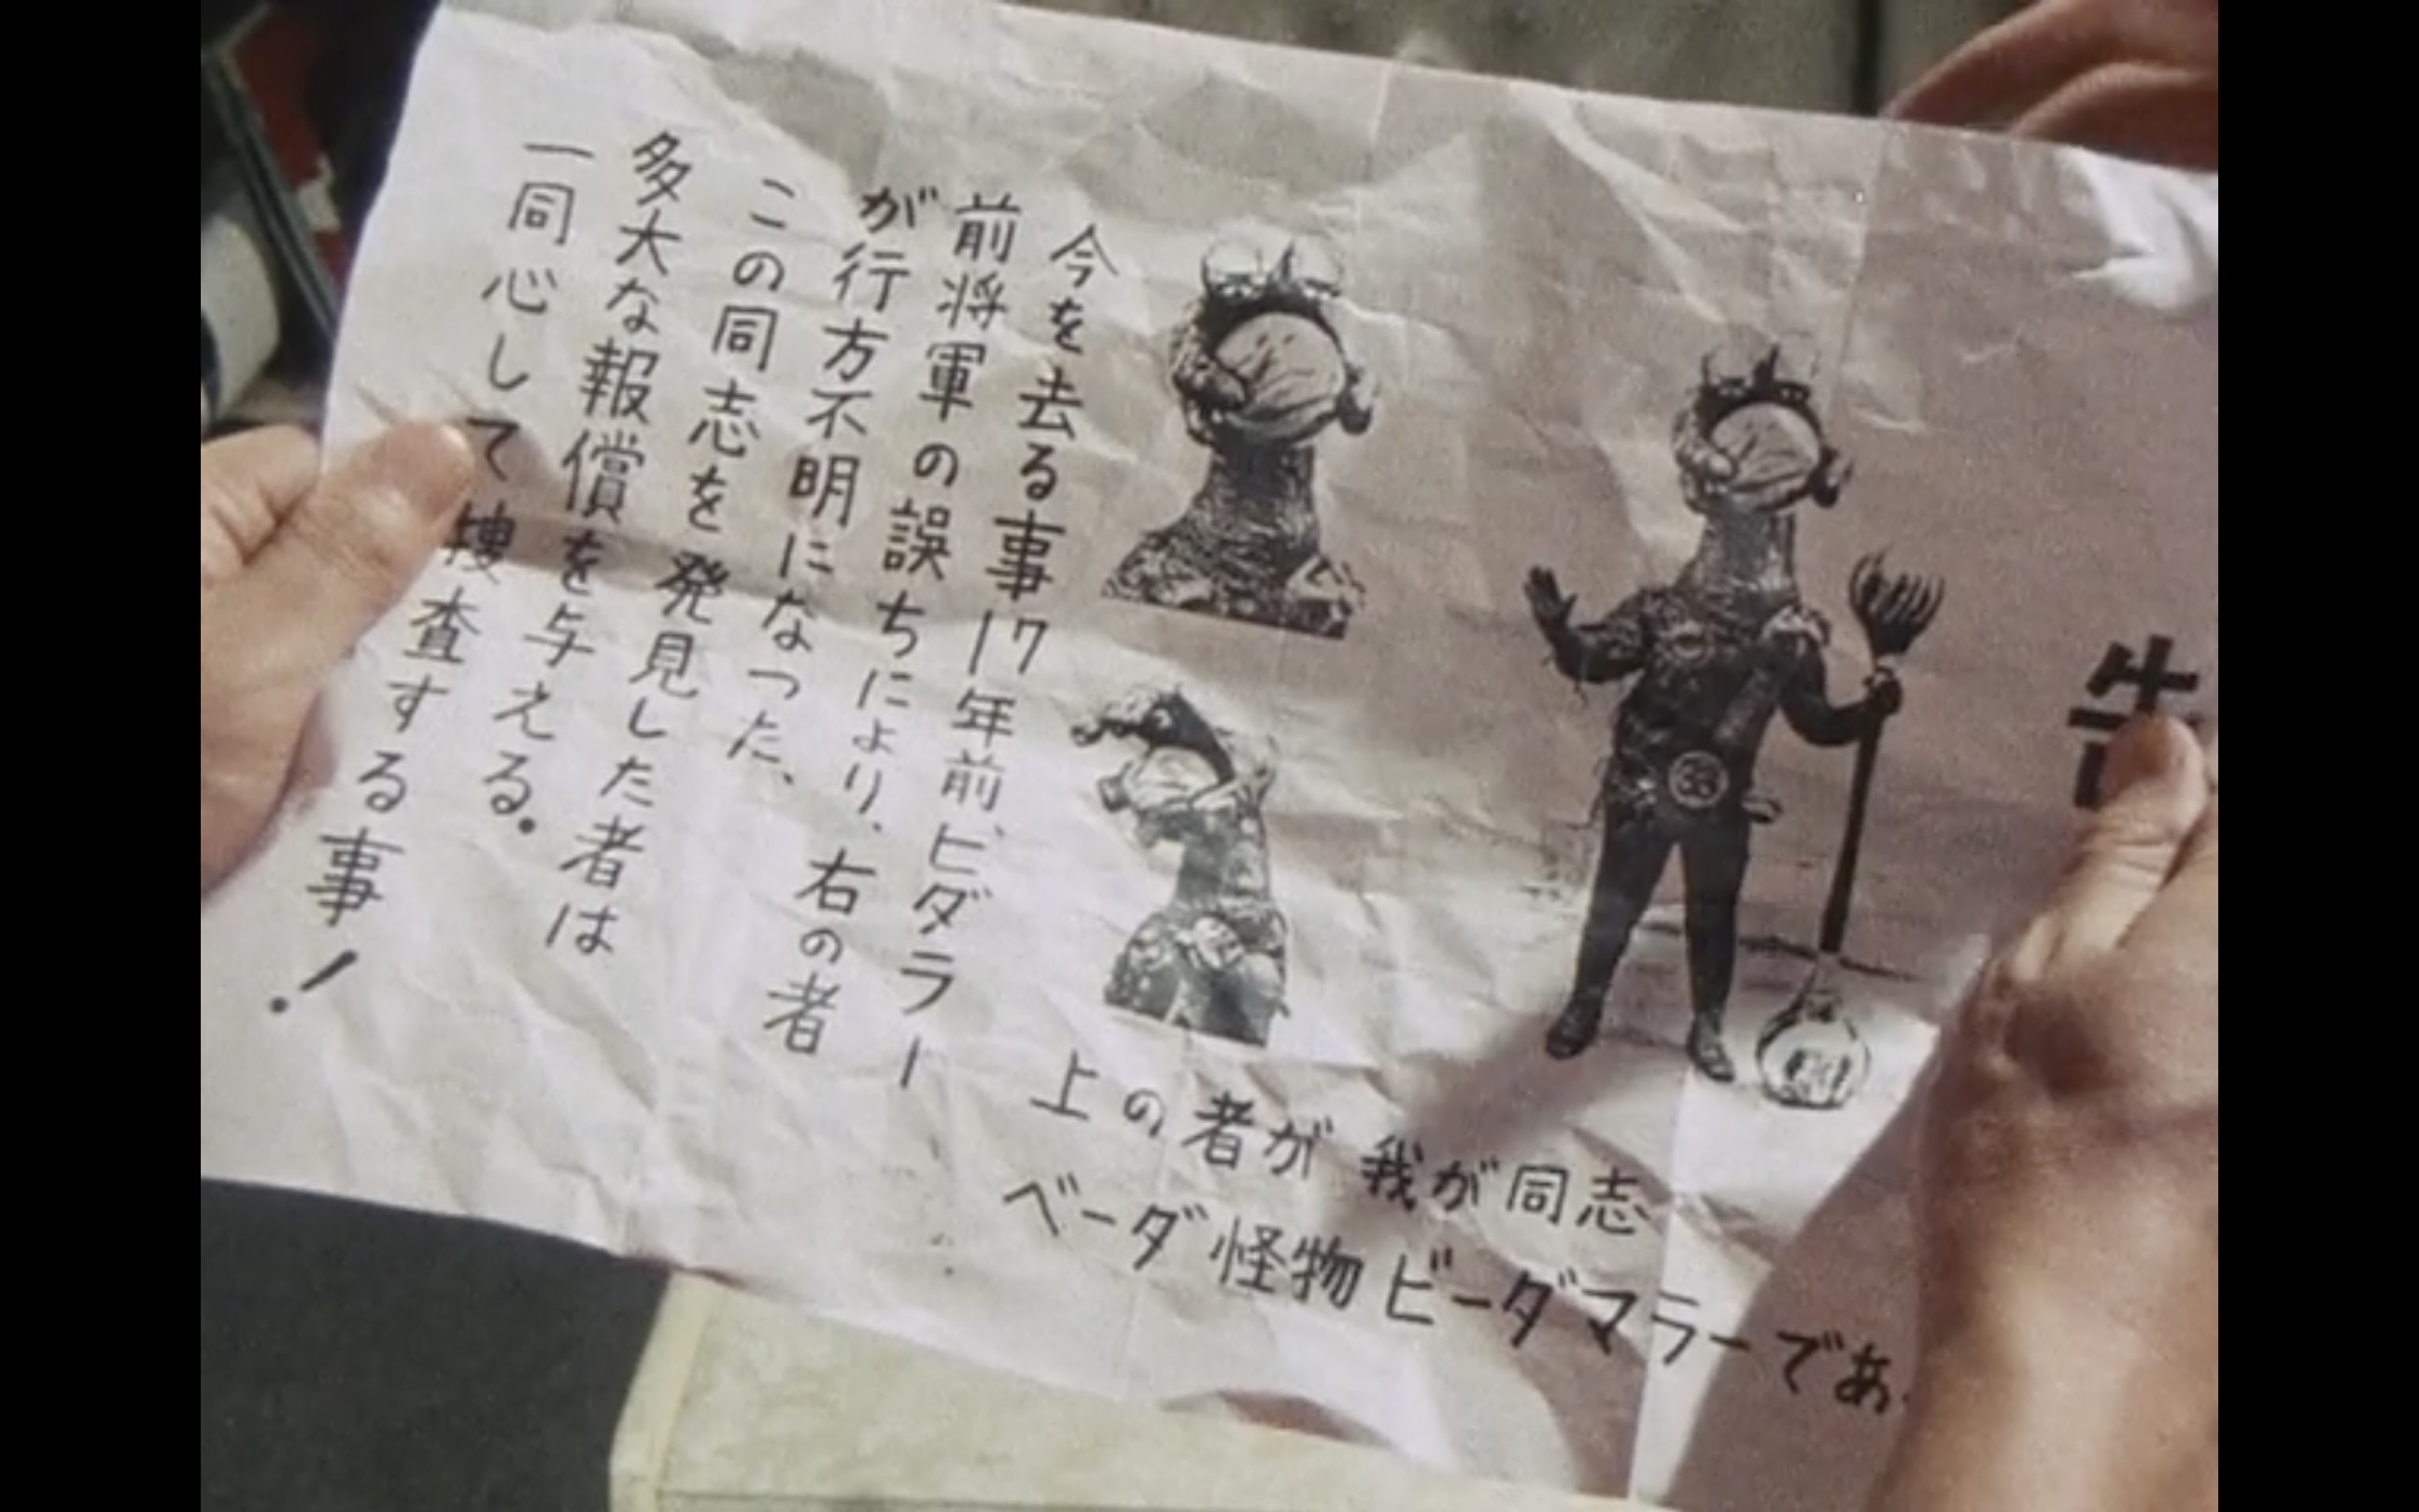 告
上の者が我が同志
ベーダ怪物ビーダマラーであ
今を去る事17年前、ヒダラー
前将軍の誤ちにより、右の者
が行方不明になった、
この同志を発見した者は
多大な報償を与える。
一同心して捜査する事!